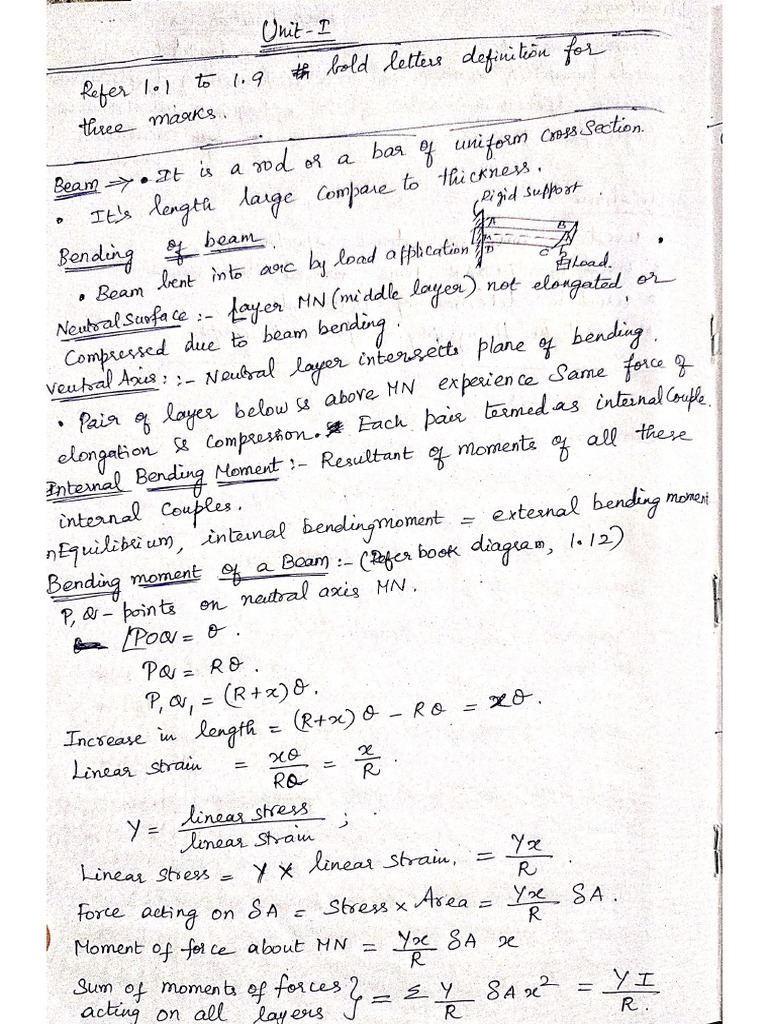 Unit-I
Refer 1.1 to 1.9 bold letters definition for
three marks.
Beam => • It is a rod or a bar of uniform cross section.
• It's length large compare to thickness.
Rigid support
Bending of beam
A B
M N
D C
Load.
• Beam bent into arc by load application
Neutral Surface :- Layer MN (middle layer) not elongated or
Compressed due to beam bending.
Neutral Axis : :- Neutral layer intersects plane of bending.
• Pair of layer below & above MN experience Same force of
elongation & compression. Each pair termed as internal couple.
Internal Bending Moment :- Resultant of moments of all these
internal Couples.
nEquilibrium, internal bending moment = external bending moment
Bending moment of a Beam :- (Refer book diagram, 1.12)
P, Q - points on neutral axis MN.
∠POQ = θ.
PQ = Rθ.
P₁Q₁ = (R+x)θ.
Increase in length = (R+x)θ - Rθ = xθ.
Linear strain = xθ/Rθ = x/R.
Y = linear stress/linear strain ;
Linear stress = Y × linear strain. = Yx/R.
Force acting on δA = Stress × Area = Yx/R δA.
Moment of force about MN = Yx/R δA x
Sum of moments of forces
acting on all layers } = Σ Y/R δA x² = YI/R.